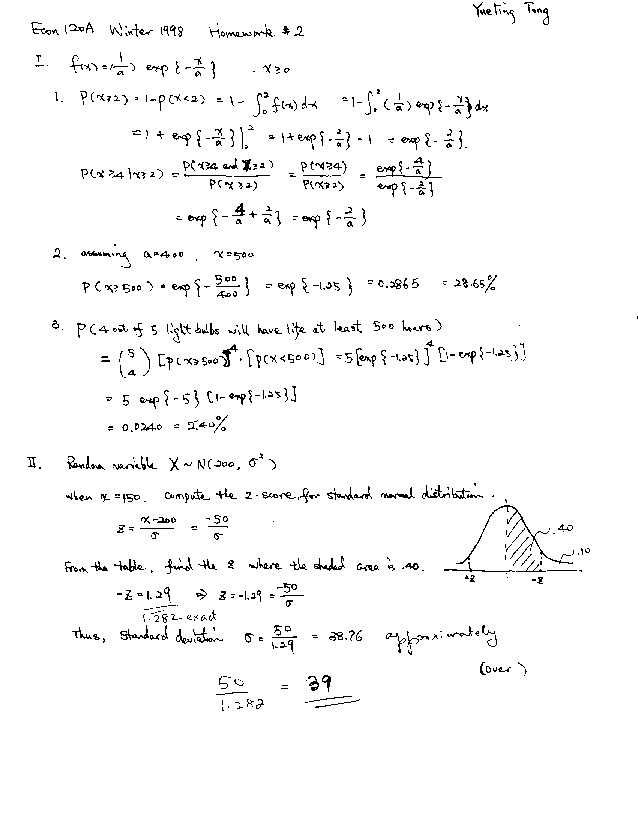 Yueting Tong
Econ 120A Winter 1998 Homework #2
I. f(x) = (1/a) exp{-x/a} . x≥0
1. P(x≥2) = 1-P(x<2) = 1 - ∫₀² f(x) dx = 1-∫₀² (1/a) exp{-x/a} dx
= 1 + exp{-x/a}|₀² = 1 + exp{-2/a} - 1 = exp{-2/a}.
P(x≥4|x≥2) = P(x≥4 and x≥2)/P(x≥2) = P(x≥4)/P(x≥2) = exp{-4/a}/exp{-2/a}
= exp{-4/a + 2/a} = exp{-2/a}
2. assuming a=400, x=500
P(x≥500) = exp{-500/400} = exp{-1.25} = 0.2865 = 28.65%
3. P(4 out of 5 light bulbs will have life at least 500 hours)
= (5 4) [P(x≥500)]⁴·[P(x<500)] = 5[exp{-1.25}]⁴ [1-exp{-1.25}]
= 5 exp{-5} [1-exp{-1.25}]
= 0.0240 = 2.40%
II. Random variable X ~ N(200, σ²)
when x=150. compute the z-score for standard normal distribution.
z = (x-200)/σ = -50/σ
.40
.10
From the table, find the z where the shaded area is .40.
+z -z
-z = 1.29 ⇒ z = -1.29 = -50/σ
1.282 exact
Thus, standard deviation σ = 50/1.29 = 38.76 approximately
(over)
50/1.282 = 39